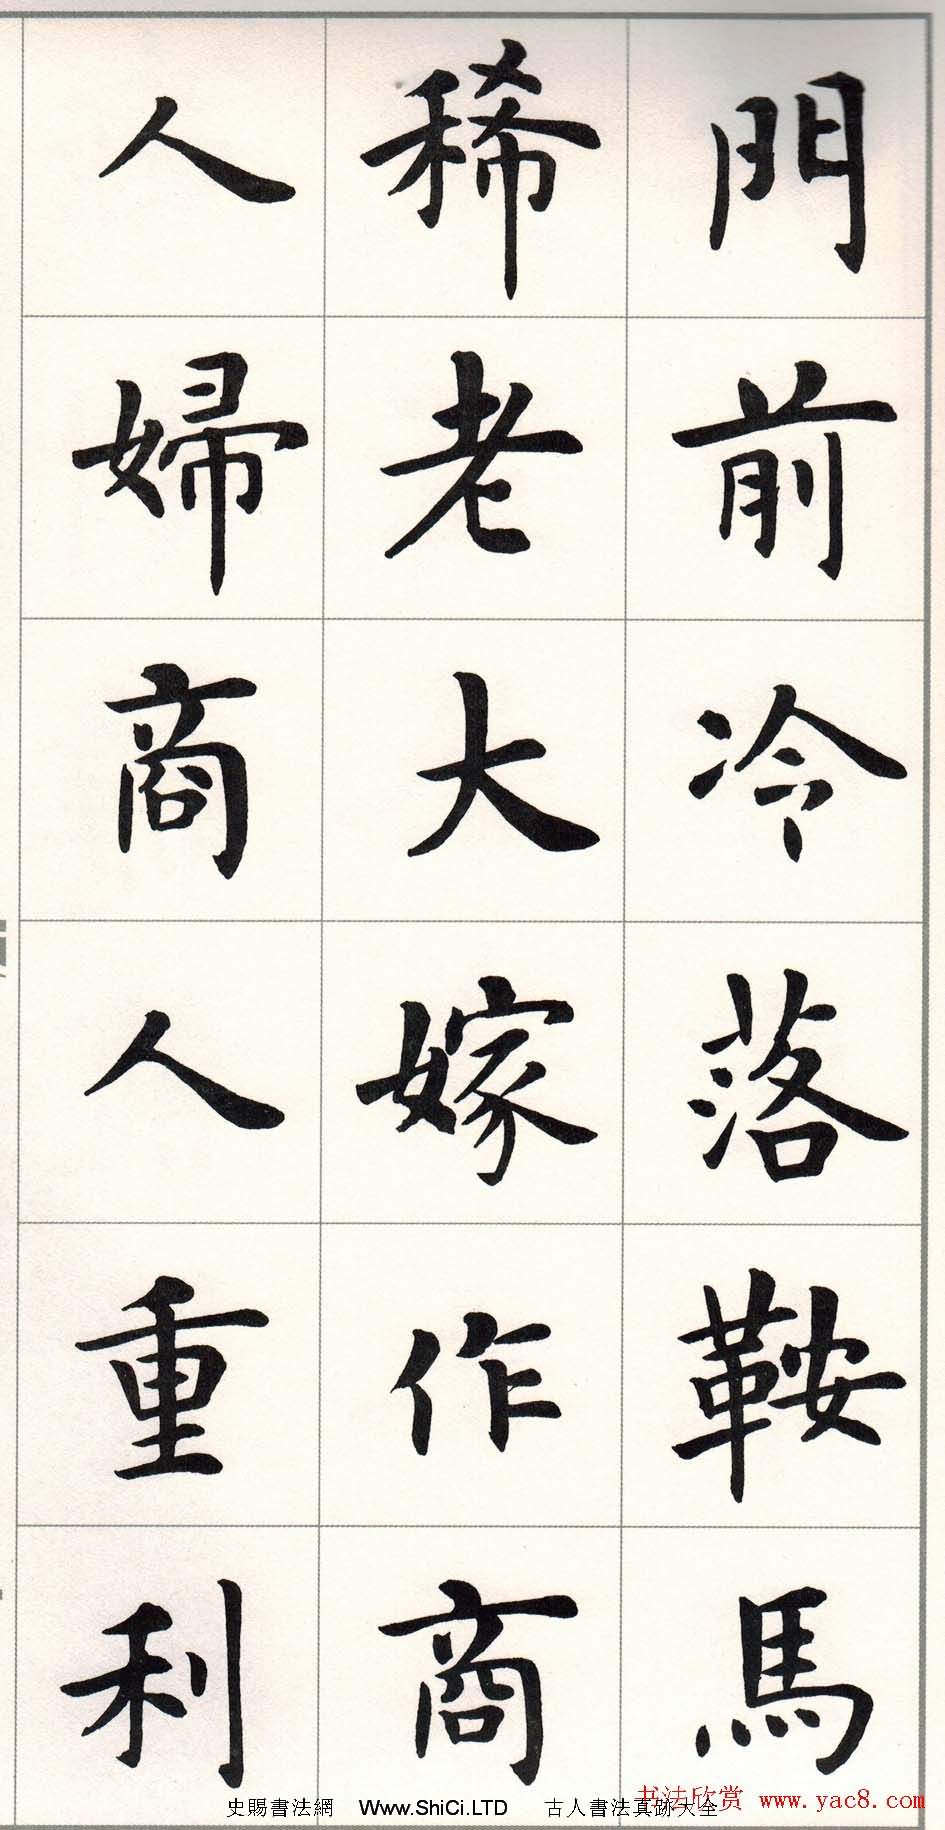 門前冷落鞍馬
稀老大嫁作商
人婦商人重利
史賜書法網 Www.ShiCi.LTD 古人書法真跡大全
书法欣赏 www.yac8.com